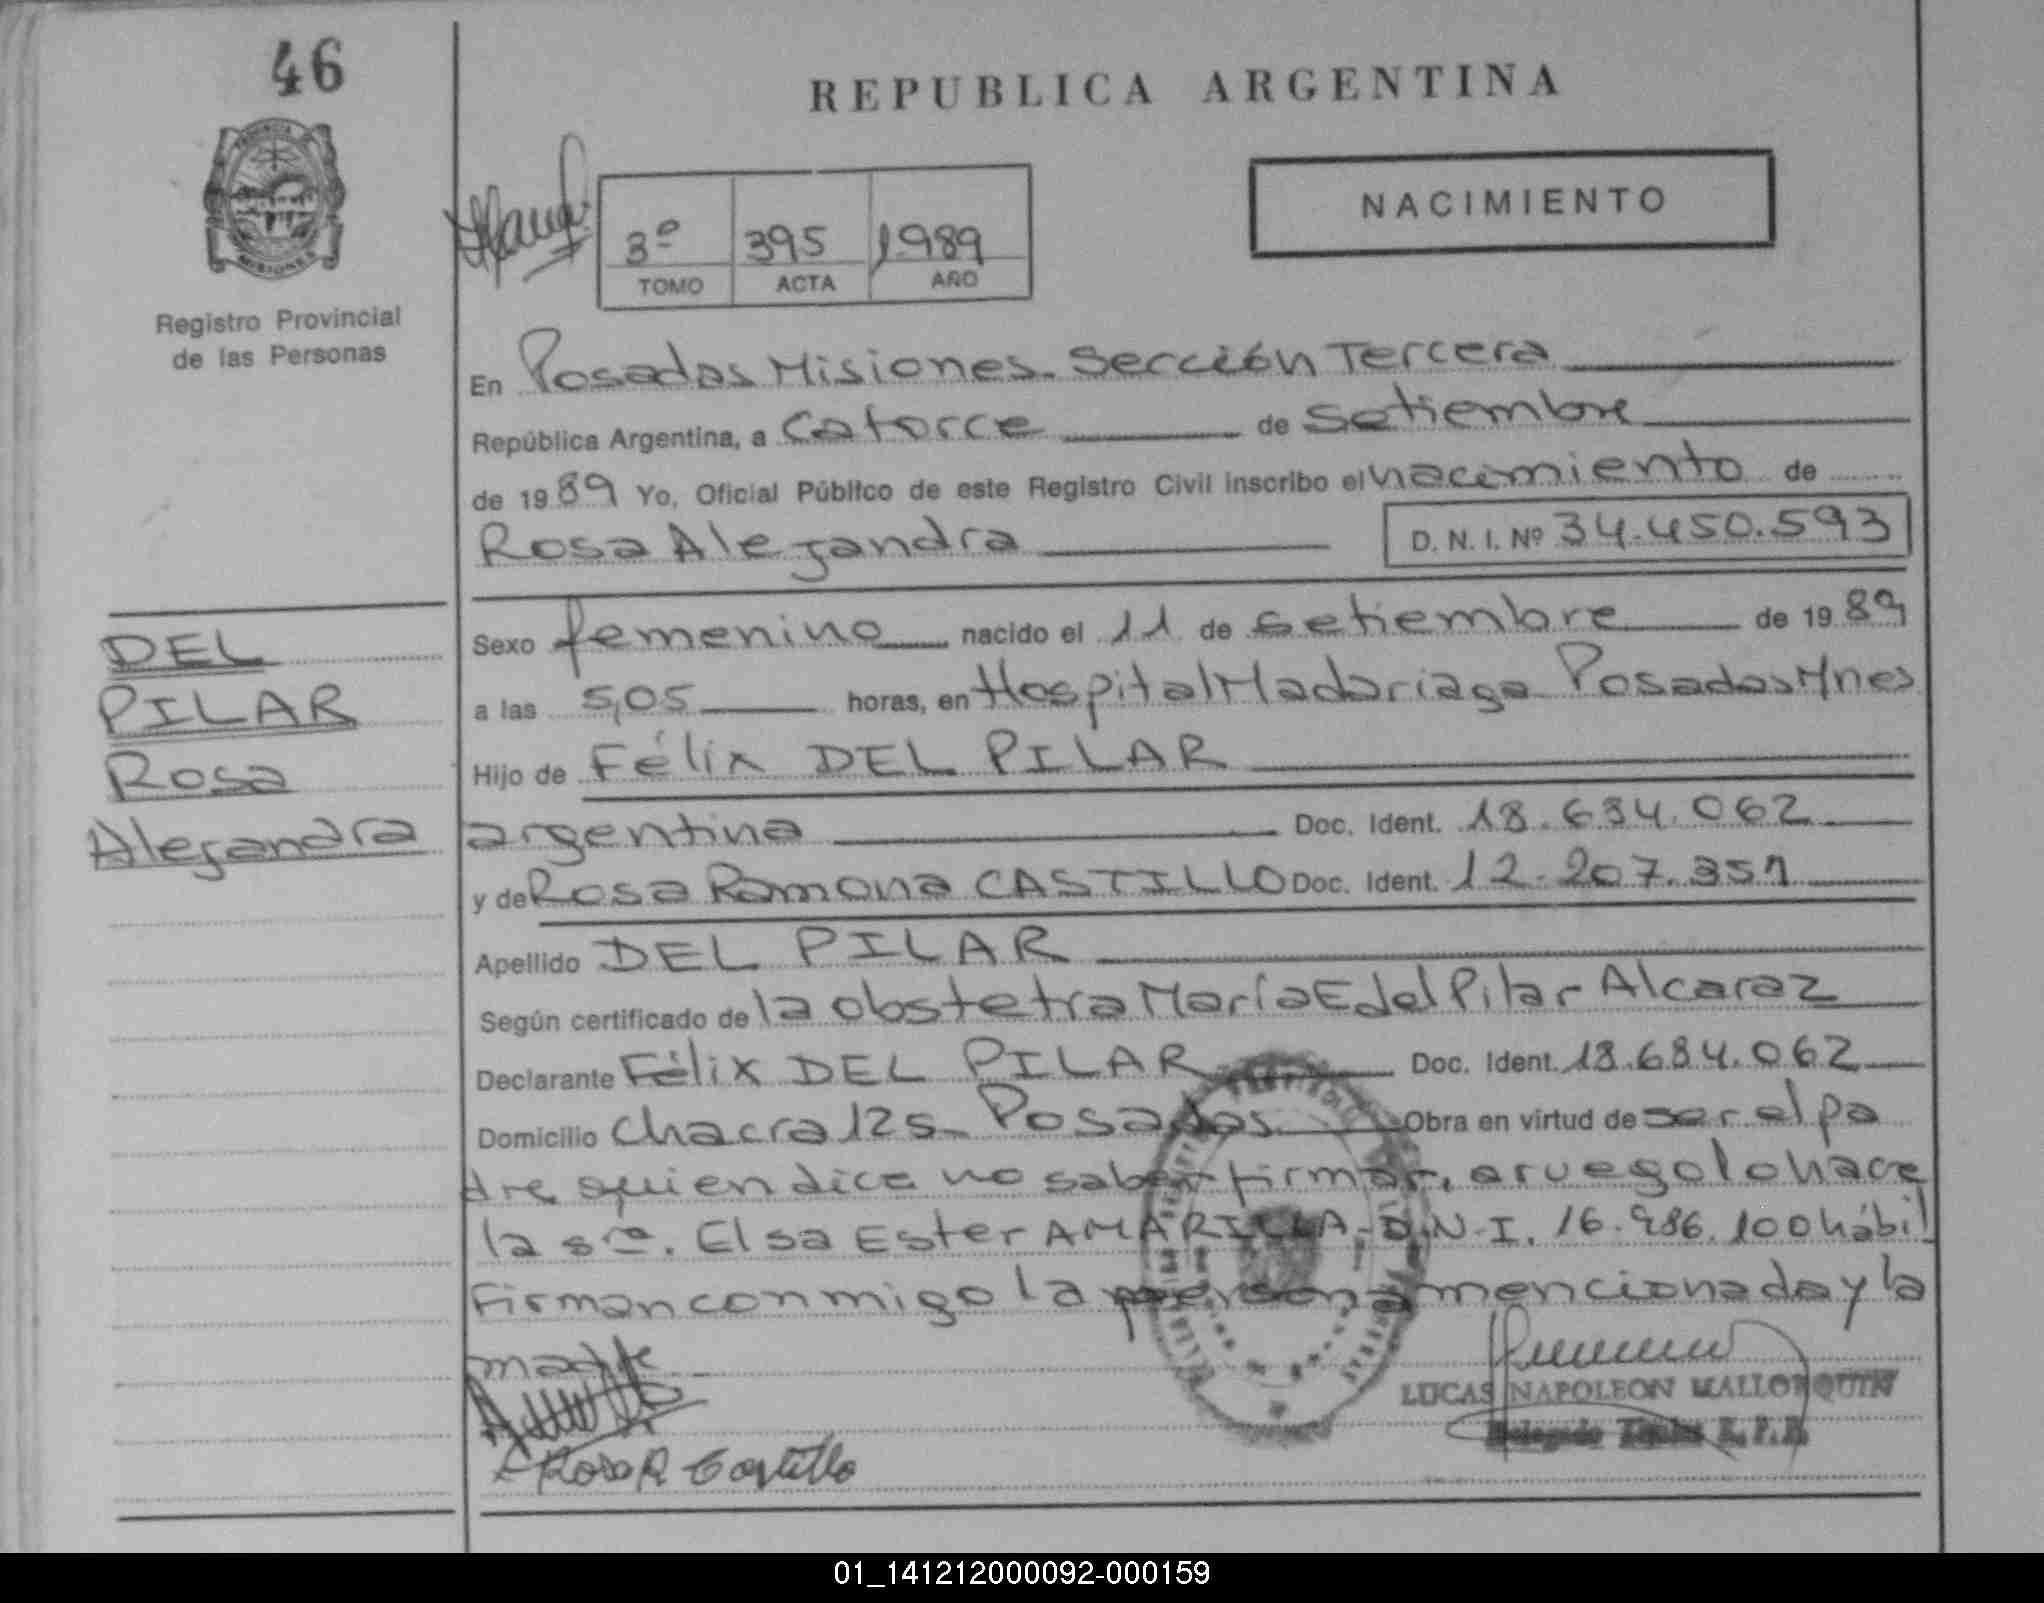 46
REPUBLICA ARGENTINA
NACIMIENTO
3º 395 1989
TOMO ACTA AÑO
MISIONES
Registro Provincial
de las Personas
En Posadas Misiones. Sección Tercera
República Argentina, a catorce de setiembre
de 1989 Yo, Oficial Público de este Registro Civil inscribo el nacimiento de
Rosa Alejandra D. N. I. Nº 34.450.593
DEL
PILAR
Rosa
Alejandra
Sexo femenino nacido el 11 de setiembre de 1989
a las 5,05 horas, en Hospital Madariaga Posadas Mnes
Hijo de Félix DEL PILAR
argentina Doc. Ident. 18.684.062
y de Rosa Ramona CASTILLO Doc. Ident. 12.207.351
Apellido DEL PILAR
Según certificado de la obstetra María E del Pilar Alcaraz
Declarante Félix DEL PILAR Doc. Ident. 18.684.062
Domicilio chacra 125 Posadas Obra en virtud de ser el pa
dre quien dice no saber firmar, a ruego lo hace
la sra. Elsa Ester AMARILLA D.N.I. 16.986.100 hábil
Firman conmigo la persona mencionada y la
madre
LUCAS NAPOLEON MALLORQUIN
Delegado Titular R.P.P.
Rosa R Castillo
01_141212000092-000159